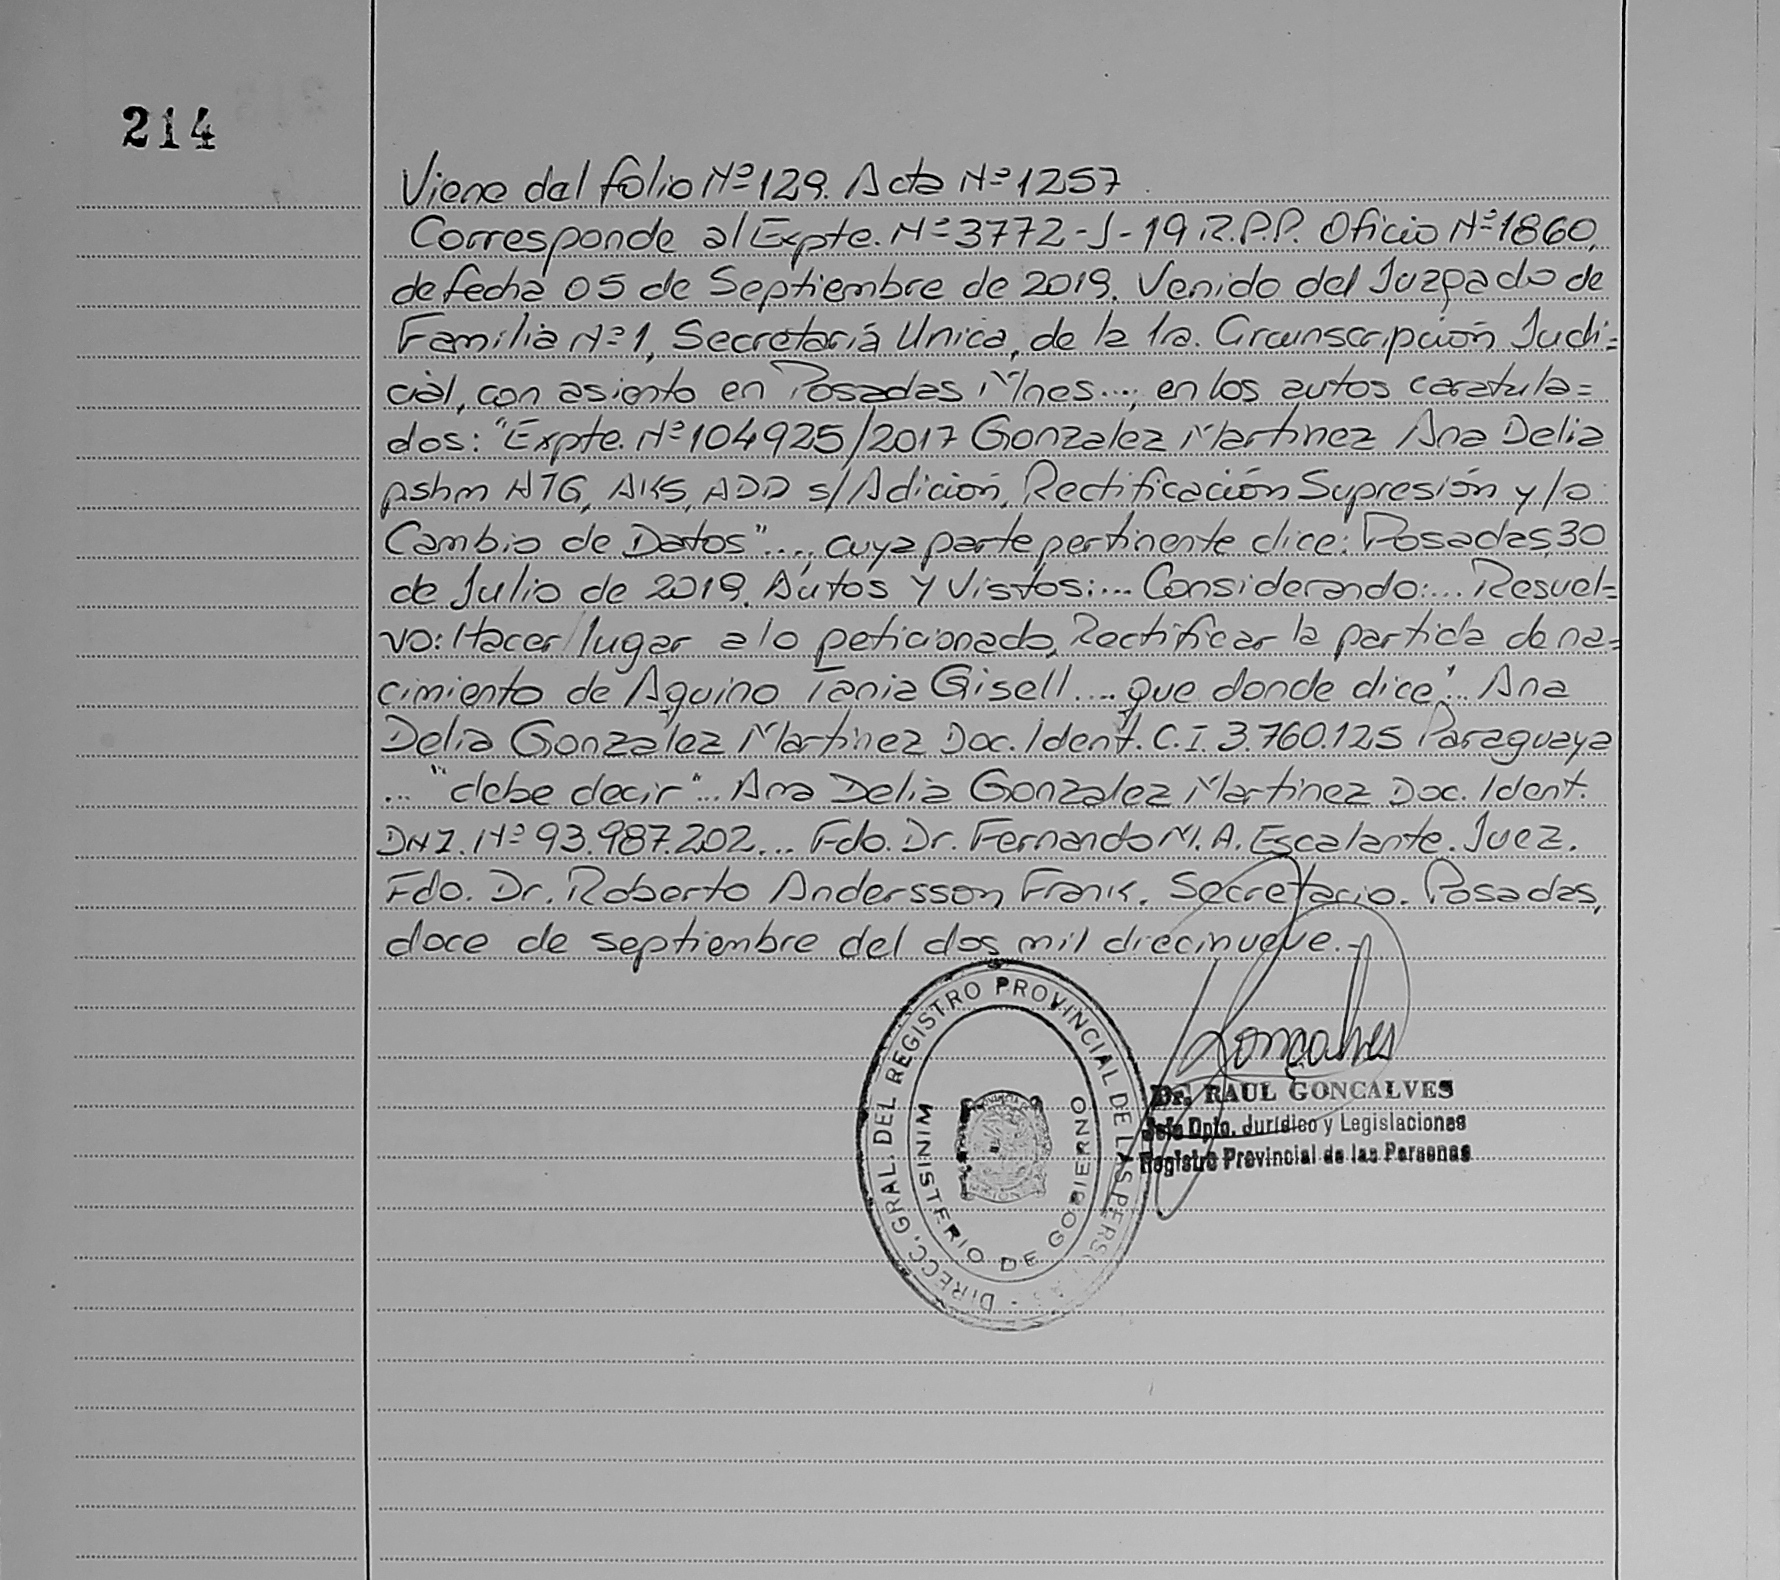 214
Viene del folio Nº 129. Acta Nº 1257
Corresponde al Expte. Nº 3772-J-19 R.P.P. Oficio Nº 1860,
de fecha 05 de Septiembre de 2019. Venido del Juzgado de
Familia Nº 1, Secretaría Unica, de la 1ra. Circunscripción Judi=
cial, con asiento en Posadas Mnes..., en los autos caratula=
dos: "Expte. Nº 104925/2017 Gonzalez Martinez Ana Delia
pshm ATG, AKS, ADD s/Adición, Rectificación Supresión y/o
Cambio de Datos"...., cuya parte pertinente dice: Posadas, 30
de Julio de 2019. Autos y Vistos:.... Considerando:... Resuel=
vo: Hacer lugar a lo peticionado, Rectificar la partida de na=
cimiento de Aquino Tania Gisell.... que donde dice "... Ana
Delia Gonzalez Martinez Doc. Ident. C.I. 3.760.125 Paraguaya
... "debe decir"... Ana Delia Gonzalez Martinez Doc. Ident.
DNI. Nº 93.987.202... Fdo. Dr. Fernando M. A. Escalante. Juez.
Fdo. Dr. Roberto Andersson Frank. Secretario. Posadas,
doce de septiembre del dos mil diecinueve.-
DIRECC. GRAL. DEL REGISTRO PROVINCIAL DE LAS PERSONAS
MINISTERIO DE GOBIERNO
Goncalves
Dr. RAUL GONCALVES
Jefe Dpto. Jurídico y Legislaciones
Registro Provincial de las Personas